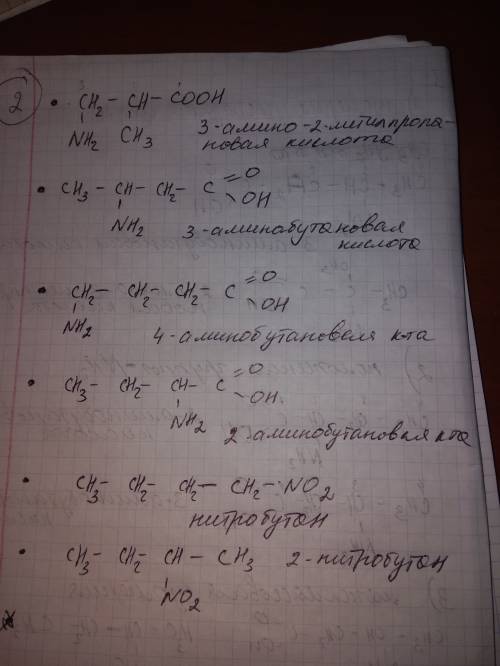 2
• CH2 – CH – COOH
NH2 CH3 3-амино-2-метилпропа-
новая кислота
• CH3 – CH – CH2 – C = O
OH
NH2 3-аминобутановая
кислота
• CH2 – CH2 – CH2 – C = O
OH
NH2 4-аминобутановая к-та
• CH3 – CH2 – CH – C = O
OH
NH2 2-аминобутановая к-та
• CH3 – CH2 – CH2 – CH2 – NO2
нитробутан
• CH3 – CH2 – CH – CH3 2-нитробутан
NO2